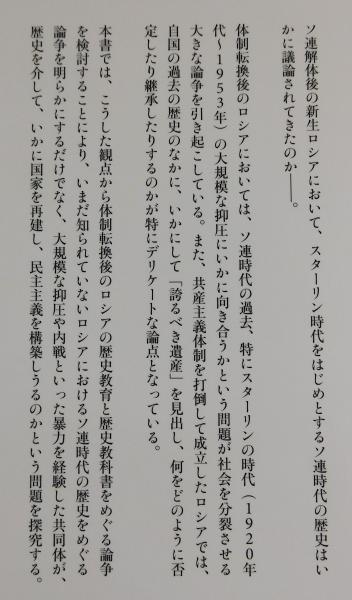 ソ連解体後の新生ロシアにおいて、スターリン時代をはじめとするソ連時代の歴史はい
かに議論されてきたのか――。
体制転換後のロシアにおいては、ソ連時代の過去、特にスターリンの時代（1920年
代〜1953年）の大規模な抑圧にいかに向き合うかという問題が社会を分裂させる
大きな論争を引き起こしている。また、共産主義体制を打倒して成立したロシアでは、
自国の過去の歴史のなかに、いかにして「誇るべき遺産」を見出し、何をどのように否
定したり継承したりするのかが特にデリケートな論点となっている。
本書では、こうした観点から体制転換後のロシアの歴史教育と歴史教科書をめぐる論争
を検討することにより、いまだ知られていないロシアにおけるソ連時代の歴史をめぐる
論争を明らかにするだけでなく、大規模な抑圧や内戦といった暴力を経験した共同体が、
歴史を介して、いかに国家を再建し、民主主義を構築しうるのかという問題を探究する。